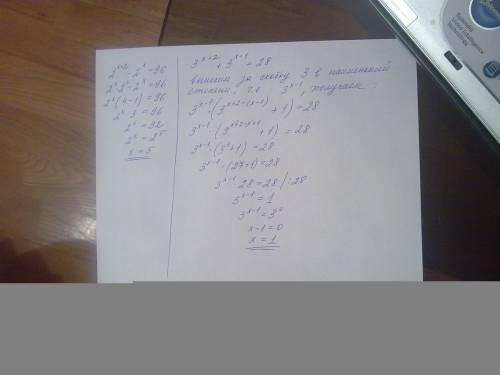 2^{x+2} - 2^x = 96
2^x · 2^2 - 2^x = 96
2^x (4-1) = 96
2^x · 3 = 96
2^x = 32
2^x = 2^5
x = 5
3^{x+2} + 3^{x-1} = 28
вынесем за скобку 3 в наименьшей
степени, т.е 3^{x-1}, получаем:
3^{x-1} · (3^{x+2-(x-1)} + 1) = 28
3^{x-1} · (3^{x+2-x+1} + 1) = 28
3^{x-1} · (3^3 + 1) = 28
3^{x-1} · (27+1) = 28
3^{x-1} · 28 = 28 | :28
3^{x-1} = 1
3^{x-1} = 3^0
x - 1 = 0
x = 1